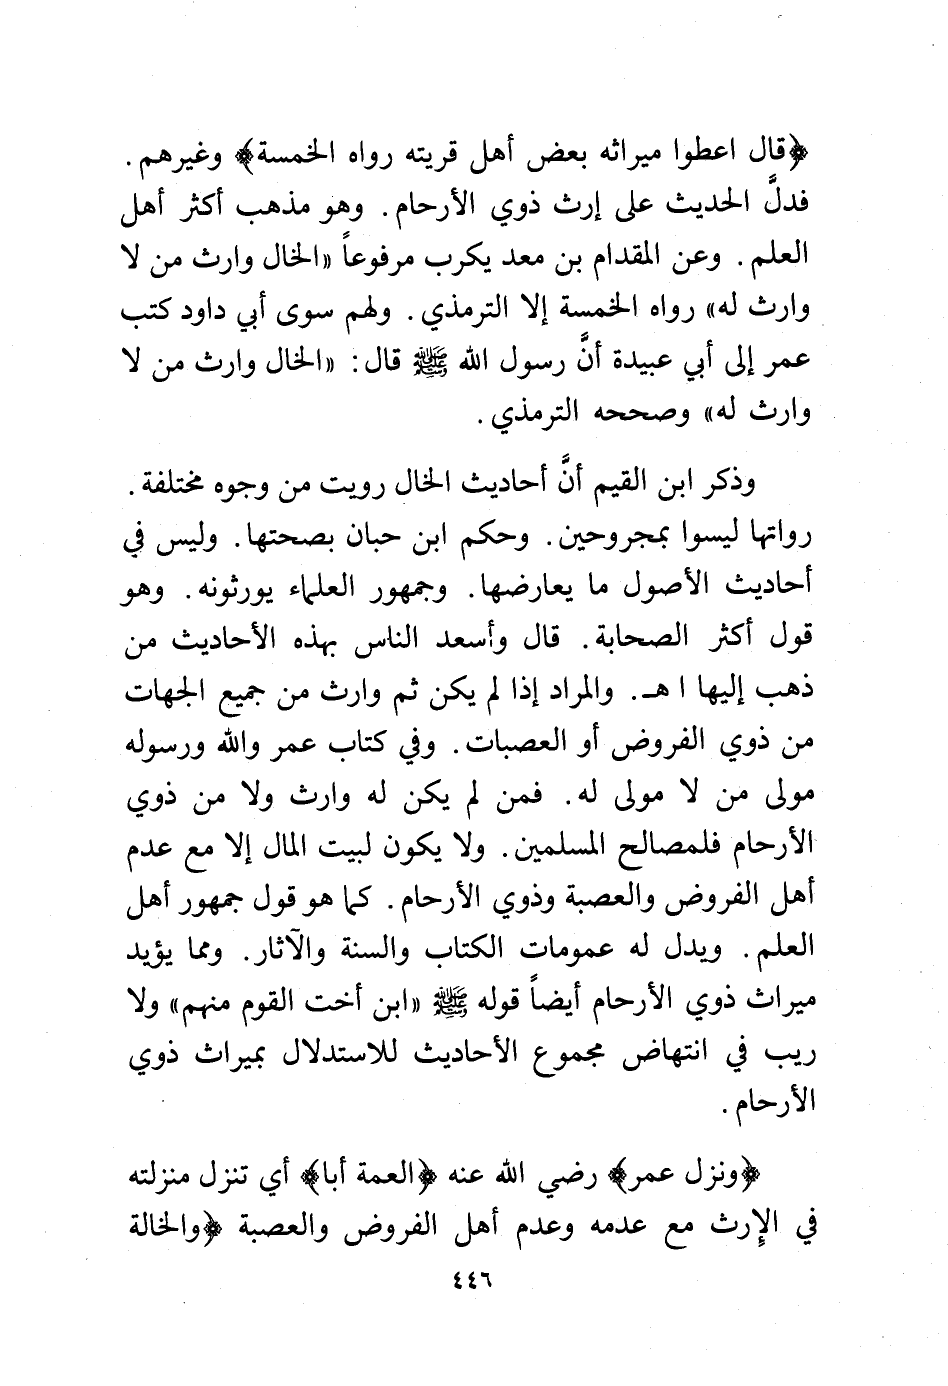 ﴿قال اعطوا ميراثه بعض أهل قريته رواه الخمسة﴾ وغيرهم .
فدلَّ الحديث على إرث ذوي الأرحام . وهو مذهب أكثر أهل
العلم . وعن المقدام بن معد يكرب مرفوعاً «الخال وارث من لا
وارث له» رواه الخمسة إلا الترمذي . ولهم سوى أبي داود كتب
عمر إلى أبي عبيدة أنَّ رسول الله ﷺ قال : «الخال وارث من لا
وارث له» وصححه الترمذي .
وذكر ابن القيم أنَّ أحاديث الخال رويت من وجوه مختلفة .
رواتها ليسوا بمجروحين . وحكم ابن حبان بصحتها . وليس في
أحاديث الأصول ما يعارضها . وجمهور العلماء يورثونه . وهو
قول أكثر الصحابة . قال وأسعد الناس بهذه الأحاديث من
ذهب إليها ا هـ . والمراد إذا لم يكن ثم وارث من جميع الجهات
من ذوي الفروض أو العصبات . وفي كتاب عمر والله ورسوله
مولى من لا مولى له . فمن لم يكن له وارث ولا من ذوي
الأرحام فلمصالح المسلمين . ولا يكون لبيت المال إلا مع عدم
أهل الفروض والعصبة وذوي الأرحام . كما هو قول جمهور أهل
العلم . ويدل له عمومات الكتاب والسنة والآثار . ومما يؤيد
ميراث ذوي الأرحام أيضاً قوله ﷺ «ابن أخت القوم منهم» ولا
ريب في انتهاض مجموع الأحاديث للاستدلال بميراث ذوي
الأرحام .
﴿ونزل عمر﴾ رضي الله عنه ﴿العمة أبا﴾ أي تنزل منزلته
في الإِرث مع عدمه وعدم أهل الفروض والعصبة ﴿والخالة
٤٤٦